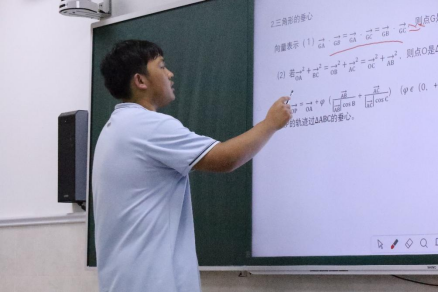 2.三角形的垂心
向量表示（1）$\overrightarrow{GA}$ · $\overrightarrow{GB}$ = $\overrightarrow{GA}$ · $\overrightarrow{GC}$ = $\overrightarrow{GB}$ · $\overrightarrow{GC}$ ，则点G是
（2）若$\overrightarrow{OA}^2$ + $\overrightarrow{BC}^2$ = $\overrightarrow{OB}^2$ + $\overrightarrow{AC}^2$ = $\overrightarrow{OC}^2$ + $\overrightarrow{AB}^2$ ，则点O是Δ
= $\overrightarrow{OA}$ + φ（ cos B + cos C ）（φ ∈（0, +
的轨迹过ΔABC的垂心。